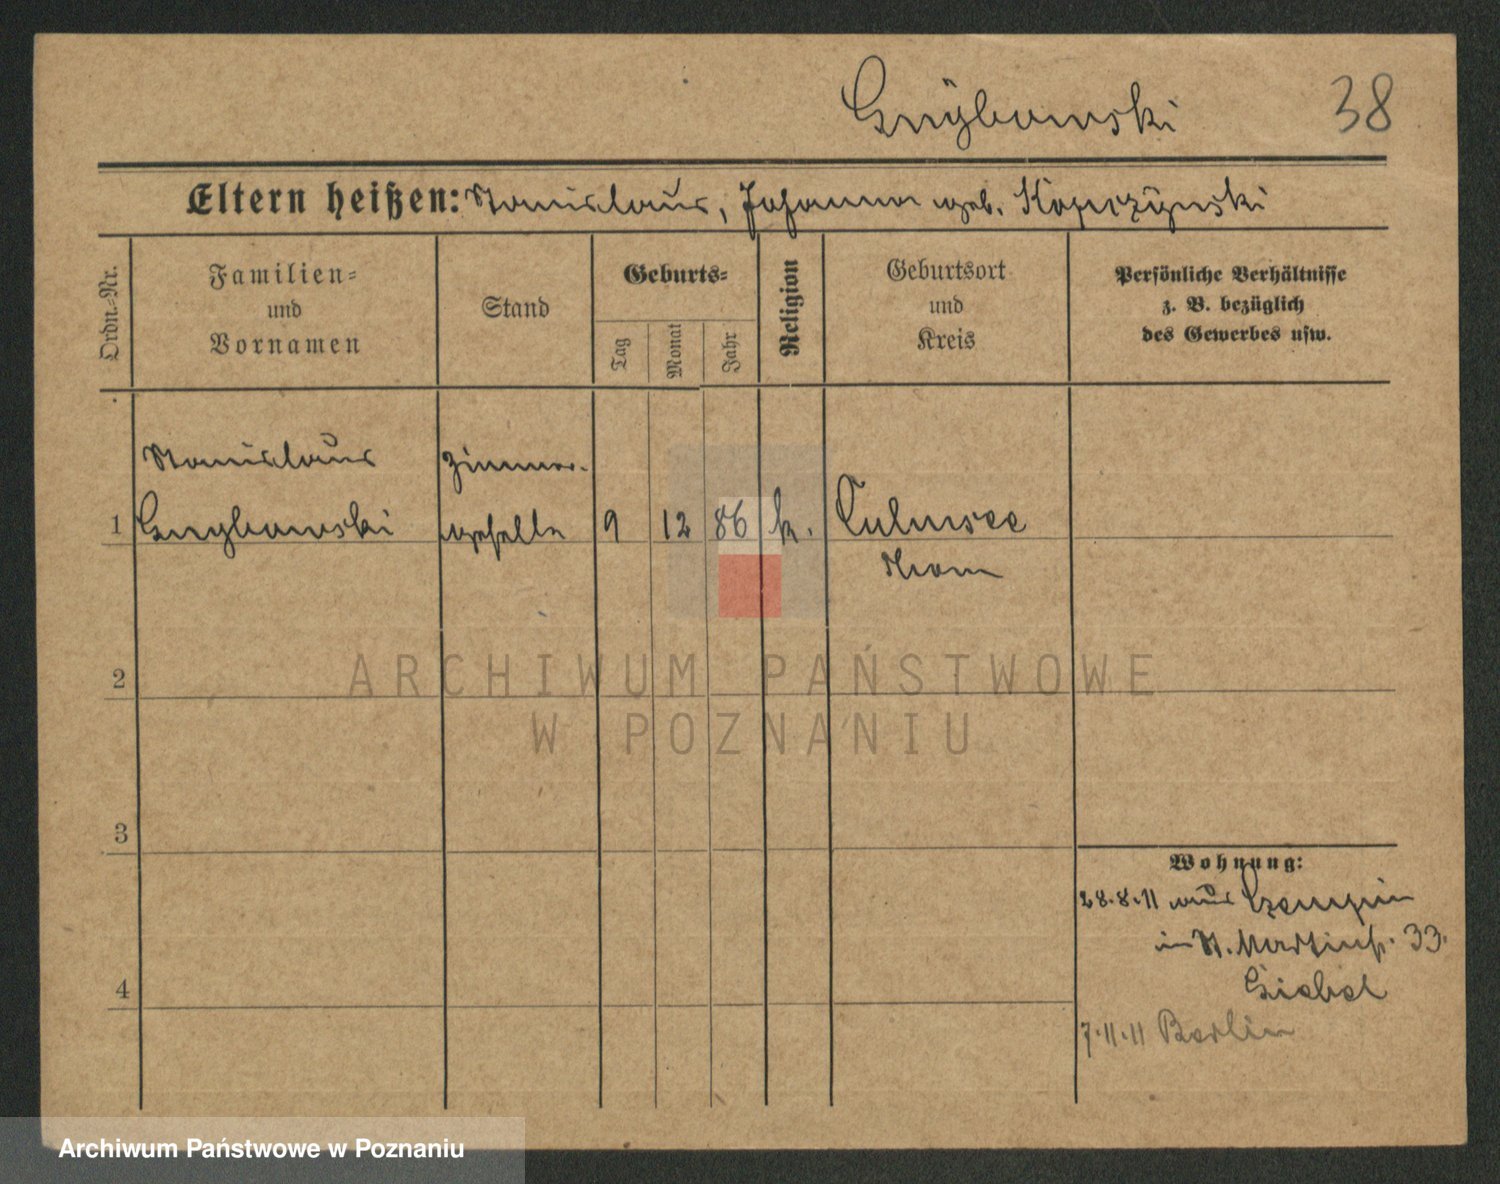 Grzybowski 38
Eltern heißen: Stanislaus, Johanna geb. Koprzynski
Ordn.-Nr.
Familien-
und
Vornamen
Stand
Geburts-
Tag
Monat
Jahr
Religion
Geburtsort
und
Kreis
Persönliche Verhältnisse
z. B. bezüglich
des Gewerbes usw.
Stanislaus Zimmer-
1 Grzybowski geselle 9 12 86 k. Culmsee
Thorn
2
3
4
Wohnung:
28.8.11 aus Czempin
in St. Martinstr. 33.
Giebel
7.11.11 Berlin
ARCHIWUM PAŃSTWOWE
W POZNANIU
Archiwum Państwowe w Poznaniu